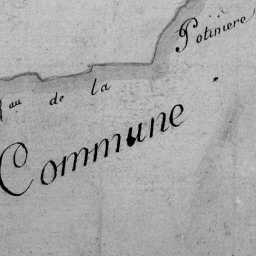 au de la Potinière
Commune